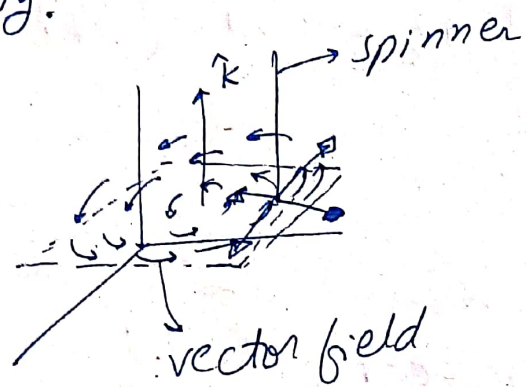 y.
spinner
k̂
vector field